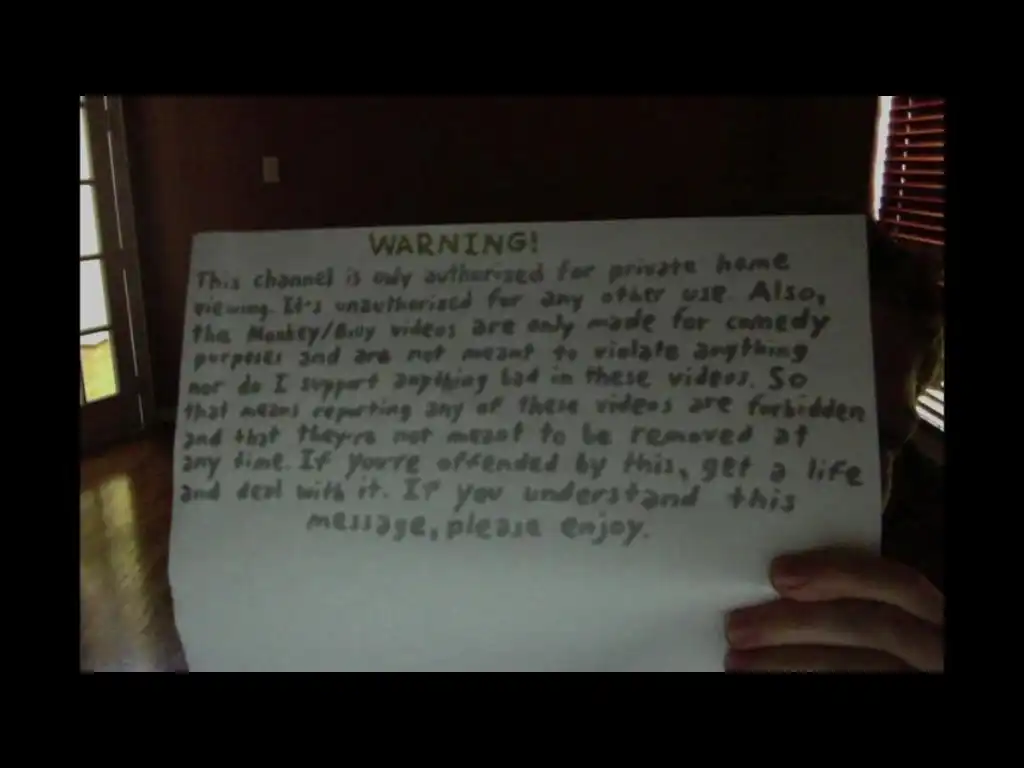 WARNING!
This channel is only authorized for private home
viewing. It's unauthorized for any other use. Also,
the Monkey/Billy videos are only made for comedy
purposes and are not meant to violate anything
nor do I support anything bad in these videos. So
that means reporting any of these videos are forbidden
and that they're not meant to be removed at
any time. If you're offended by this, get a life
and deal with it. If you understand this
message, please enjoy.